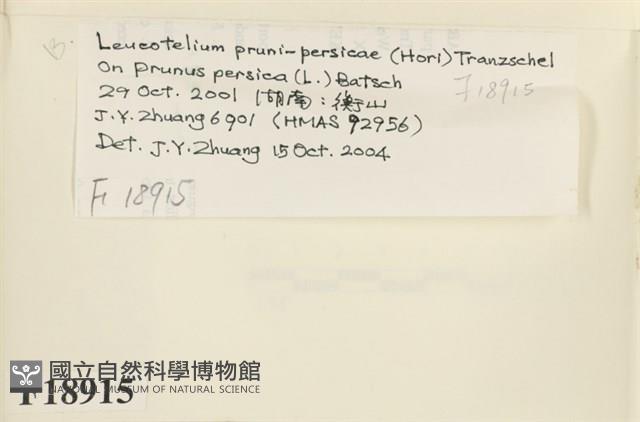 B.
Leucotelium pruni-persicae (Hori) Tranzschel
on Prunus persica (L.) Batsch
F18915
29 Oct. 2001 湖南: 衡山
J.Y. Zhuang 6901 (HMAS 92956)
Det. J.Y. Zhuang 15 Oct. 2004
F 18915
國立自然科學博物館
NATIONAL MUSEUM OF NATURAL SCIENCE
F18915